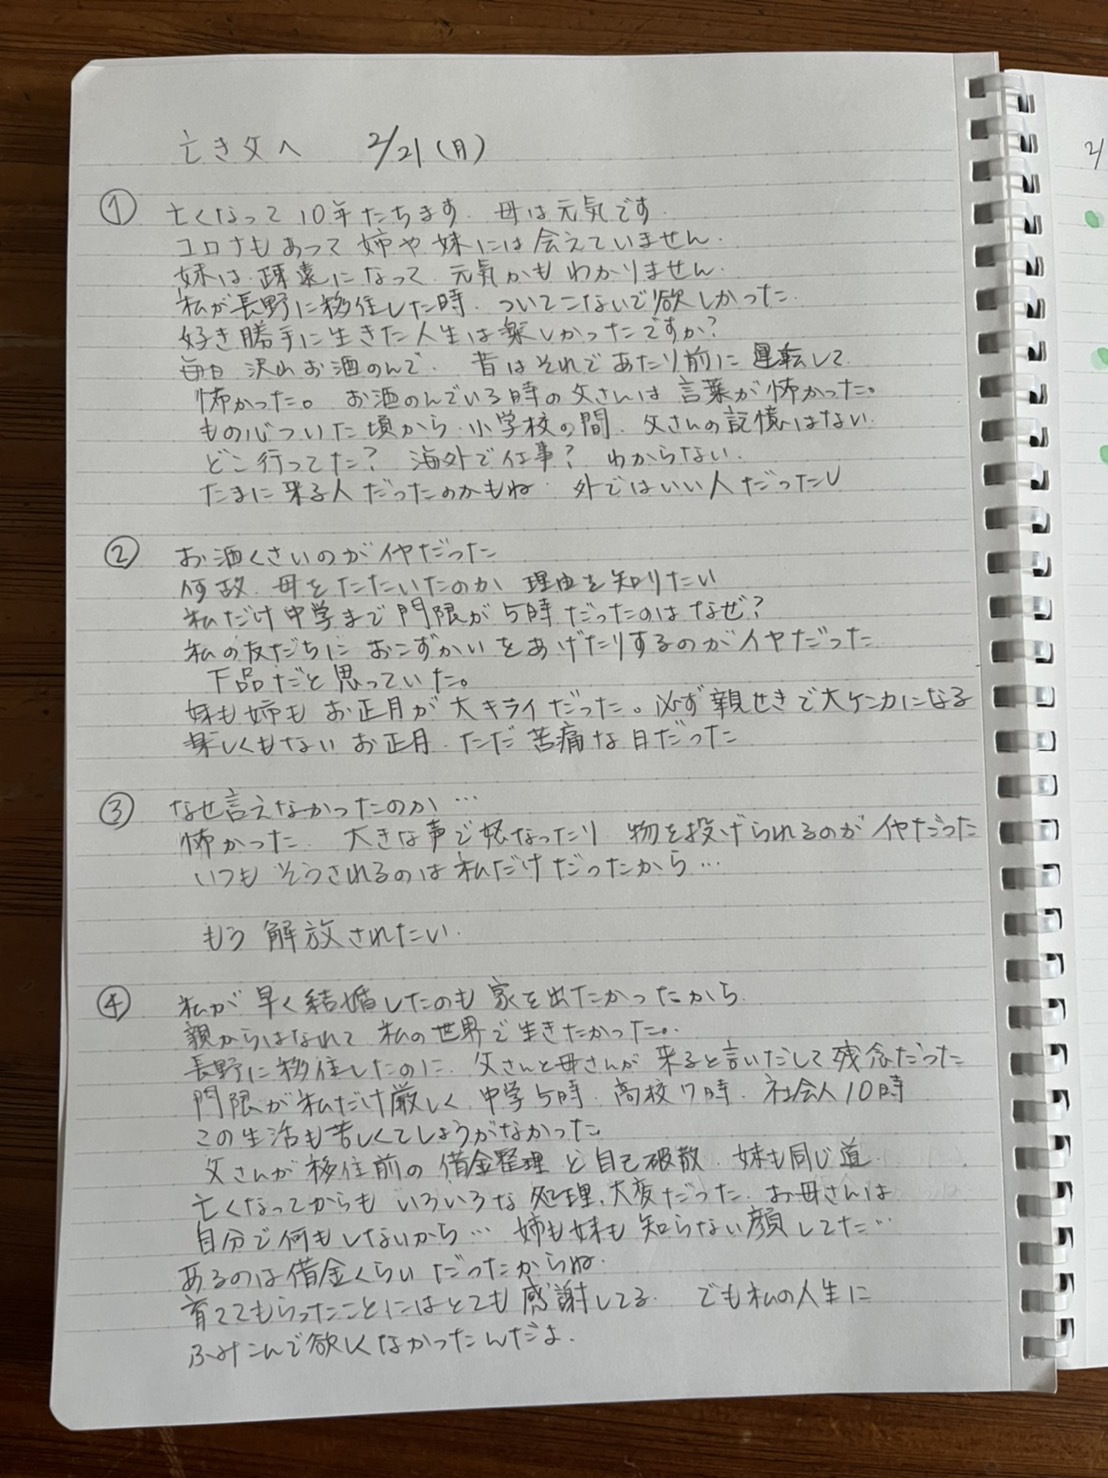 亡き父へ 2/21(月)
① 亡くなって10年たちます. 母は元気です.
コロナもあって 姉や妹には会えていません.
妹は.疎遠になって. 元気かもわかりません.
私が長野に移住した時. ついてこないで欲しかった.
好き勝手に生きた人生は楽しかったですか?
毎日 沢山お酒のんで. 昔はそれであたり前に 運転して.
怖かった。 お酒のんでいる時の父さんは 言葉が怖かった。
もの心ついた頃から.小学校の間. 父さんの記憶はない.
どこ行ってた? 海外で仕事? わからない.
たまに来る人だったのかもね. 外ではいい人だったし
② お酒くさいのがイヤだった
何故. 母をたたいたのか 理由を知りたい
私だけ中学まで門限が5時だったのはなぜ?
私の友だちに おこずかいをあげたりするのがイヤだった
下品だと思っていた。
妹も姉も お正月が大キライだった。必ず親せきで大ゲンカになる
楽しくもない お正月. ただ苦痛な日だった
③ なぜ言えなかったのか…
怖かった. 大きな声で怒なったり 物を投げられるのがイヤだった
いつも そうされるのは私だけだったから…
もう 解放されたい.
④ 私が早く結婚したのも 家を出たかったから.
親からはなれて 私の世界で生きたかった。
長野に移住したのに. 父さんと母さんが来ると言いだして残念だった
門限が私だけ厳しく. 中学5時. 高校7時. 社会人10時
この生活も苦しくてしょうがなかった
父さんが移住前の 借金整理と自己破散. 妹も同じ道.
亡くなってからも いろいろな処理、大変だった. お母さんは
自分で何もしないから… 姉も妹も 知らない顔してた…
あるのは借金くらいだったからね.
育ててもらったことにはとても感謝してる. でも私の人生に
ふみこんで欲しくなかったんだよ.
2/